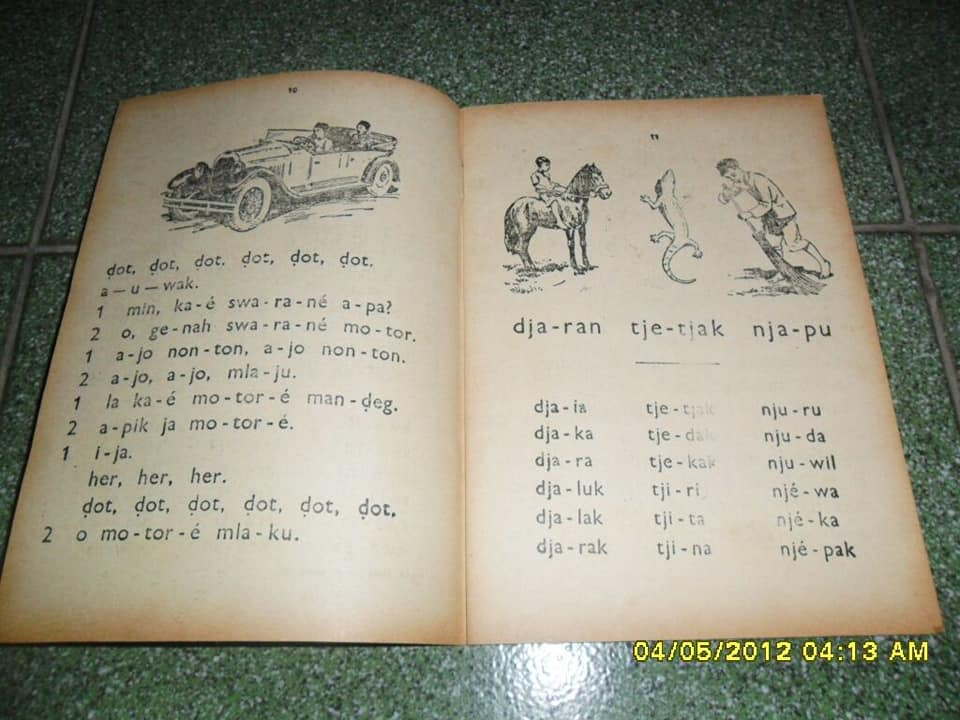 10
ḍot, ḍot, ḍot. ḍot, ḍot, ḍot.
a — u — wak.
1 min, ka-é swa-ra-né a-pa?
2 o, ge-nah swa-ra-né mo-tor.
1 a-jo non-ton, a-jo non-ton.
2 a-jo, a-jo, mla-ju.
1 la ka-é mo-tor-é man-ḍeg.
2 a-pik ja mo-tor-é.
1 i-ja.
her, her, her.
ḍot, ḍot, ḍot, ḍot, ḍot, ḍot.
2 o mo-tor-é mla-ku.
11
dja-ran tje-tjak nja-pu
tje-tjak nju-ru
dja-ka tje-dak nju-da
dja-ra tje-kak nju-wil
dja-luk tji-ri njé-wa
dja-lak tji-ta njé-ka
dja-rak tji-na njé-pak
04/05/2012 04:13 AM